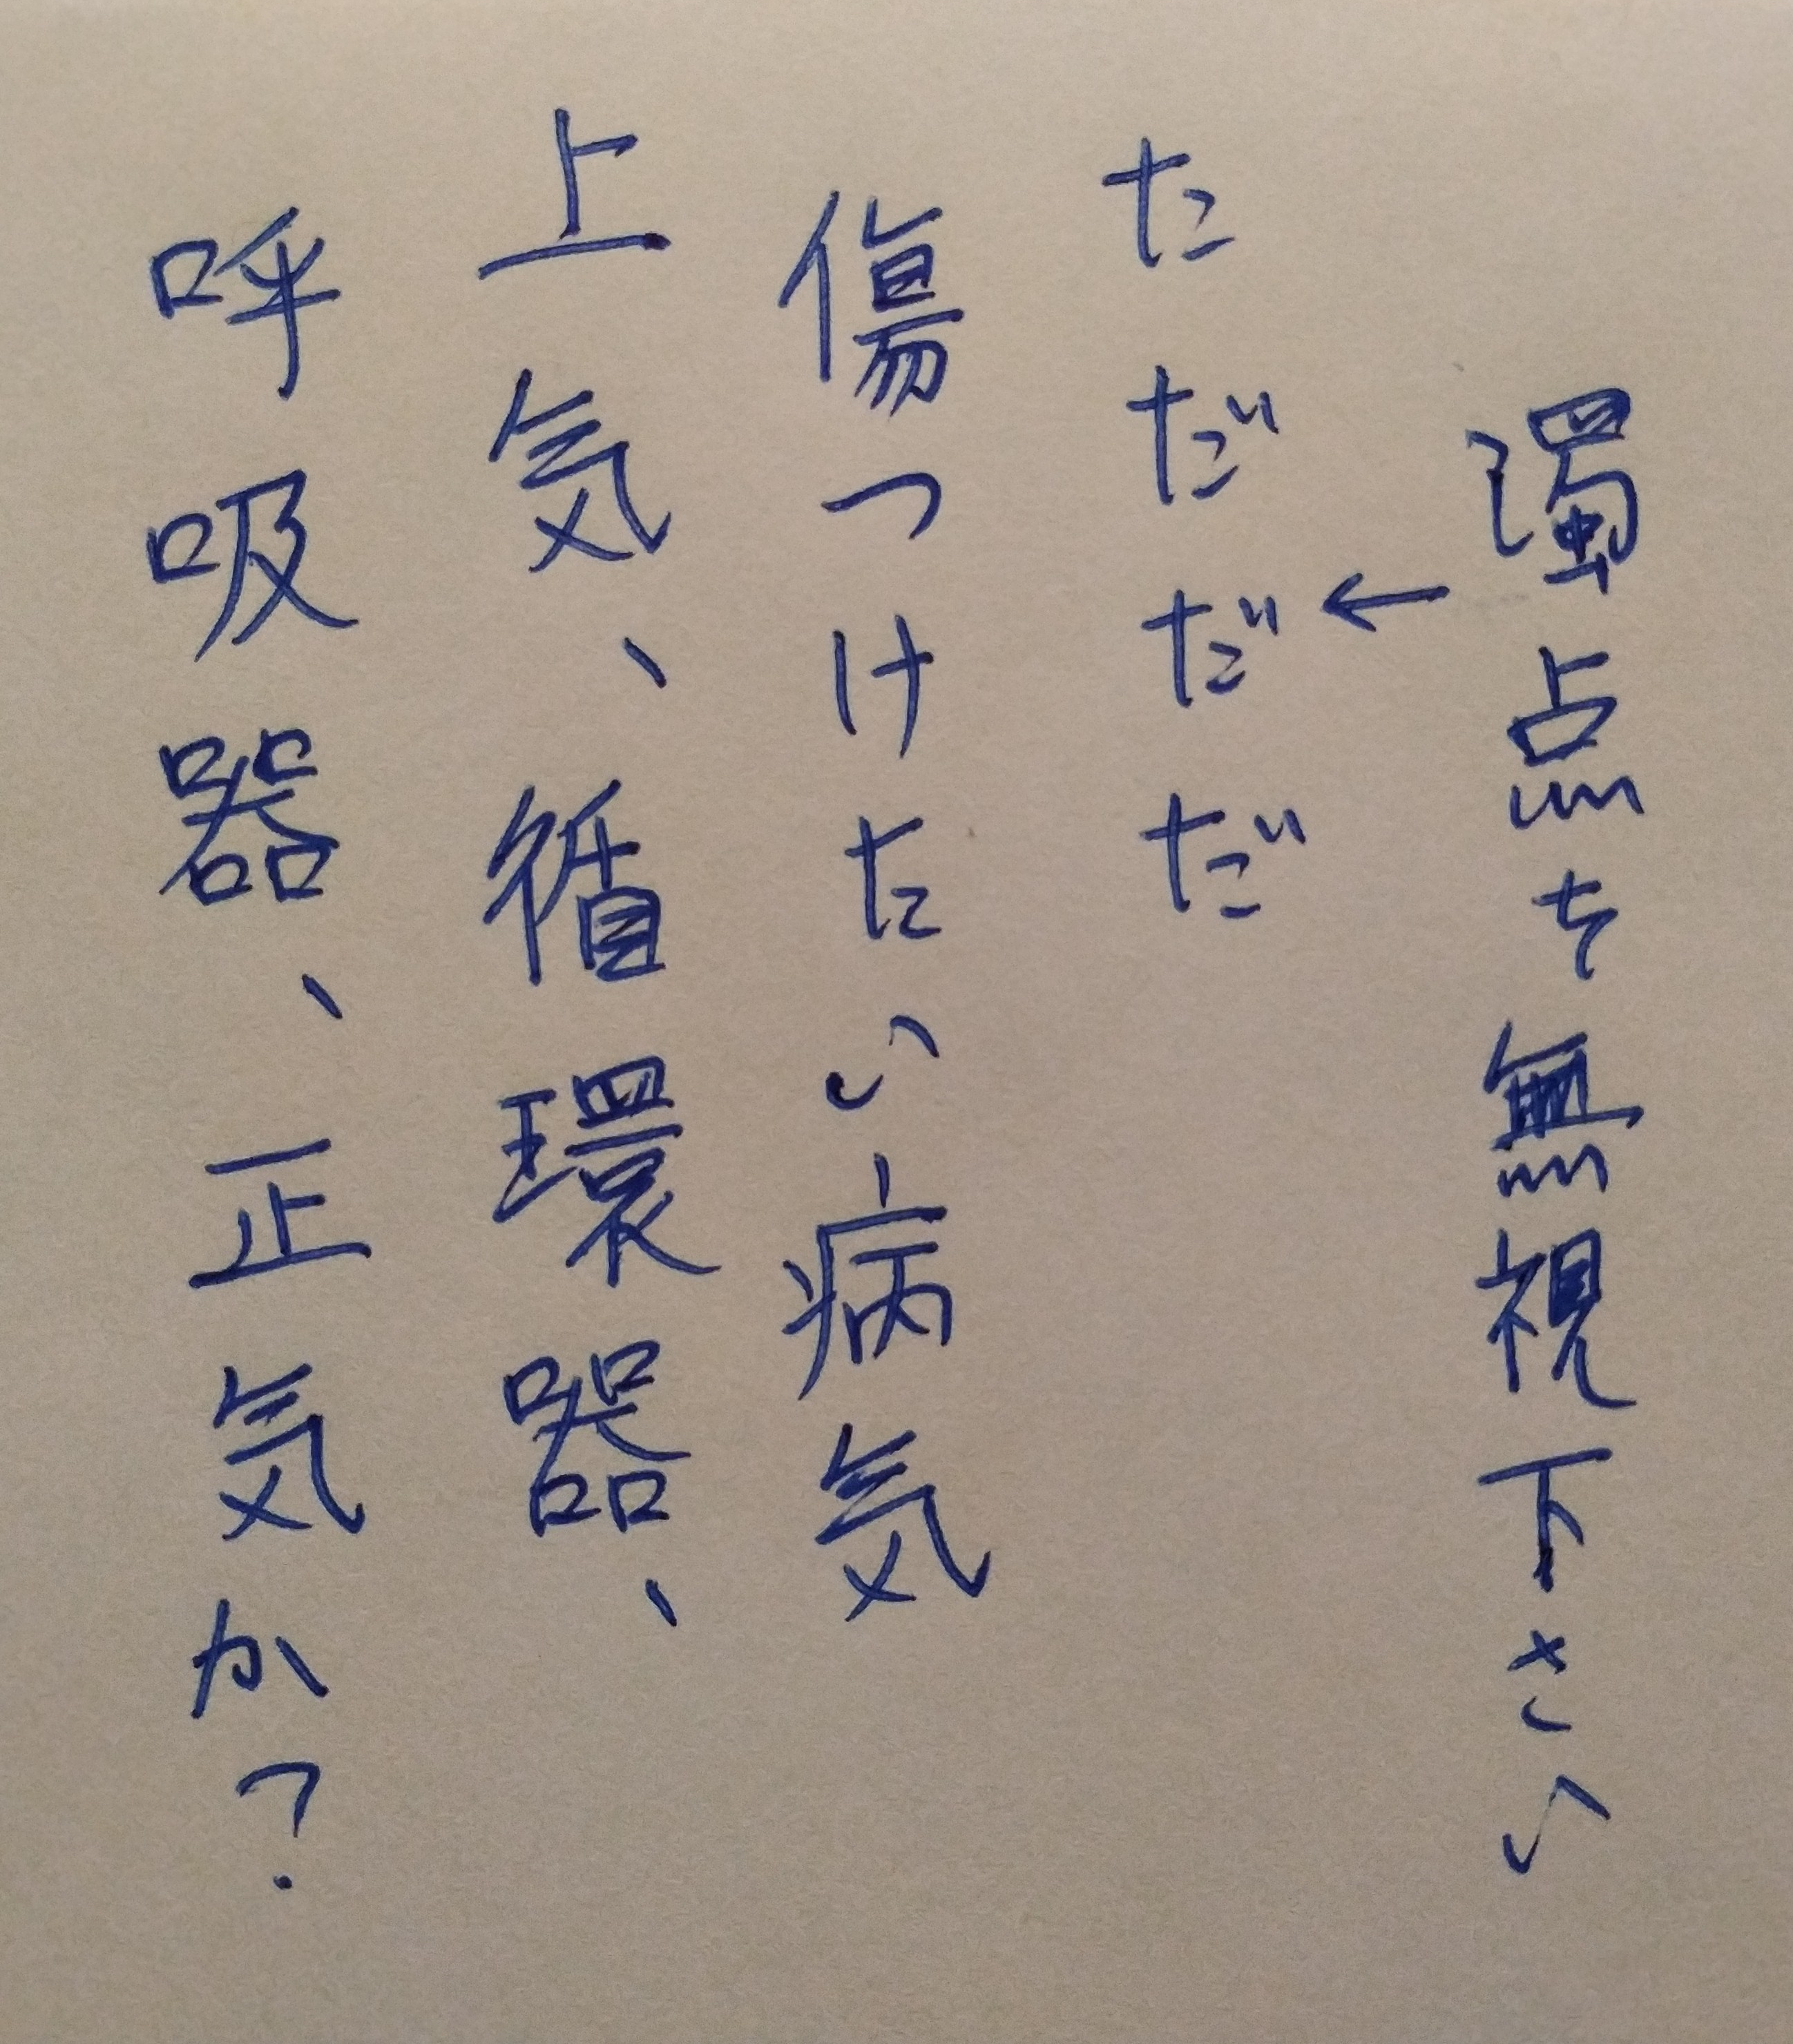 濁点を無視下さい
←
ただだだ
傷つけたい病気
上気、循環器、
呼吸器、正気か?